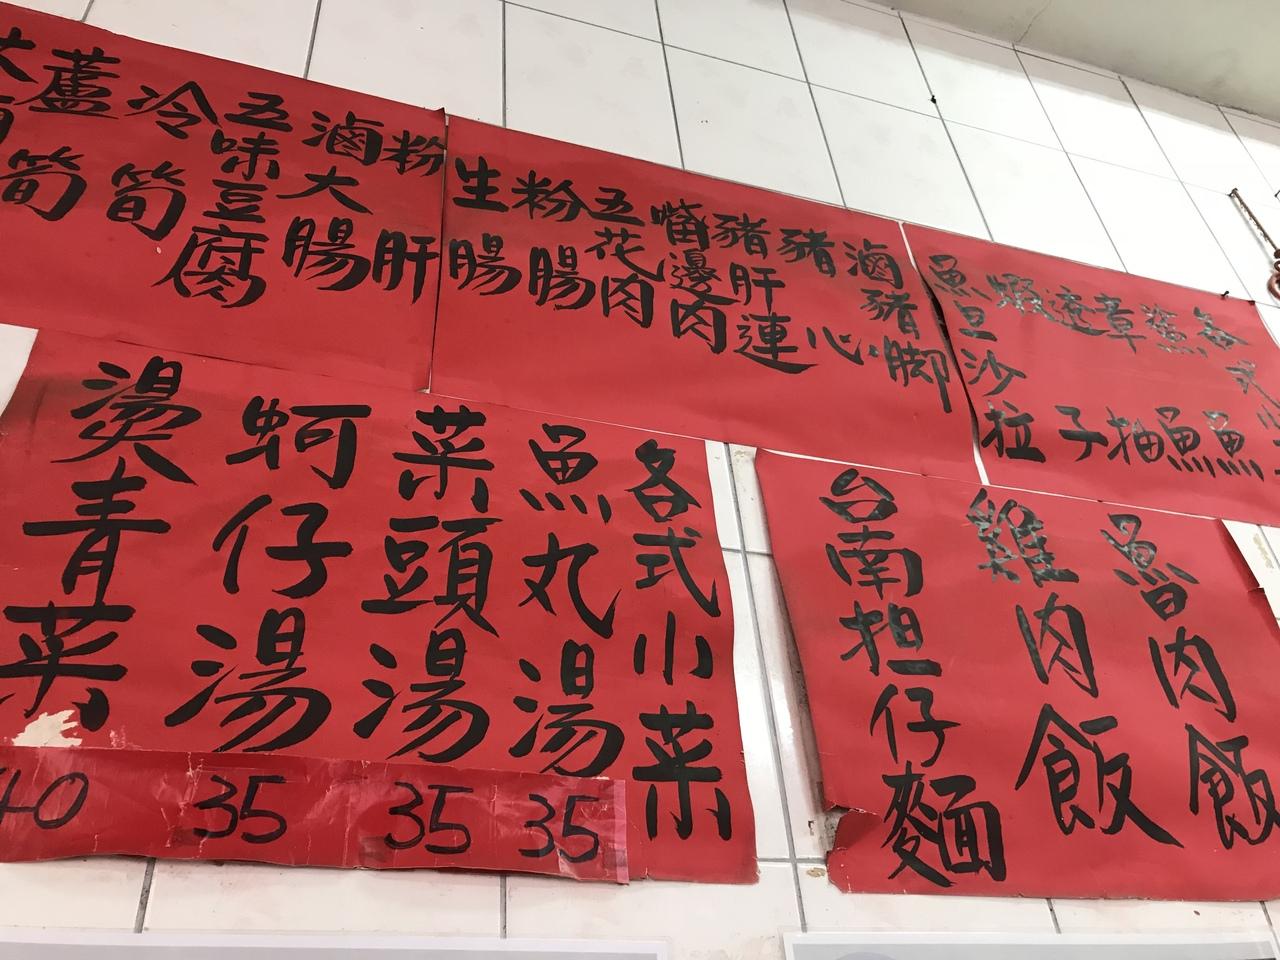 各式小
鯊魚
章魚
透抽
蝦子
魚旦沙拉
滷豬腳
豬心
豬肝連
嘴邊肉
五花肉
粉腸
生腸
粉肝
滷大腸
五味豆腐
冷筍
蘆筍
魯肉飯
雞肉飯
台南担仔麵
各式小菜
魚丸湯
35
菜頭湯
35
蚵仔湯
35
燙青菜
40